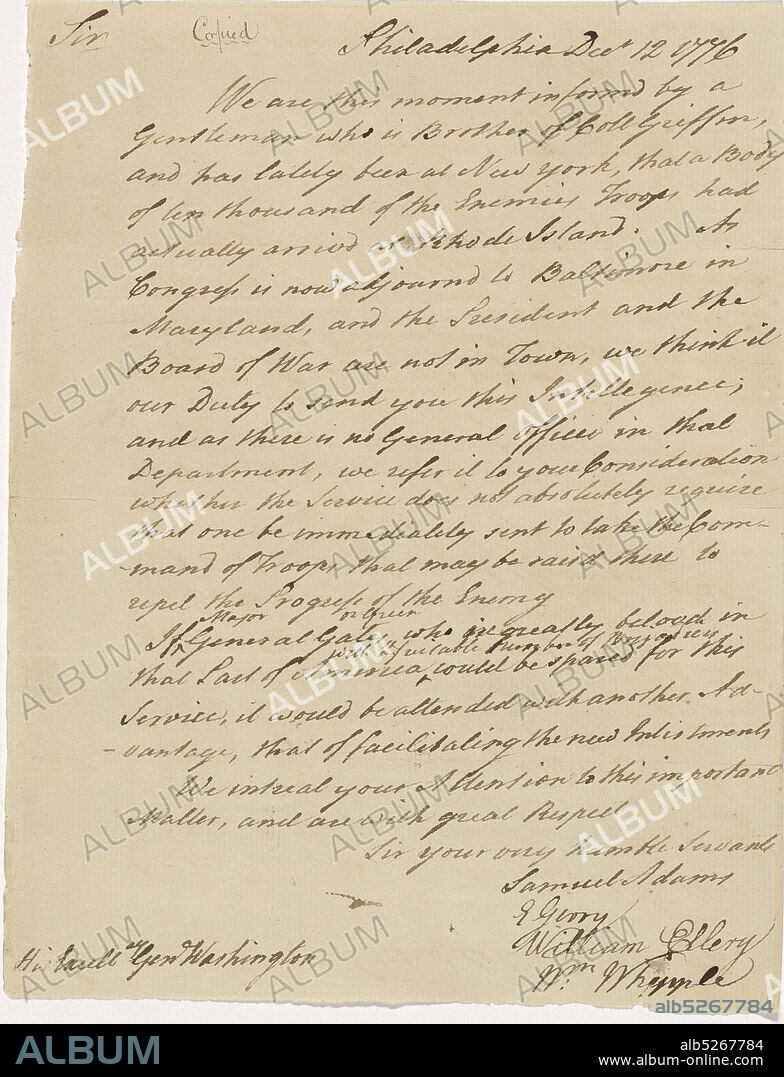 Sir
Copied
Philadelphia Decr 12 1776
We are this moment informd by a
Gentleman who is Brother of Coll Griffin,
and has lately been at New York, that a Body
of ten thousand of the Enemies Troops had
actually arrivd at Rhode Island. As
Congress is now adjournd to Baltimore in
Maryland, and the President and the
Board of War are not in Town, we think it
our Duty to send you this Intellegence;
and as there is no General Officer in that
Department, we refer it to your Consideration
whether the Service does not absolutely require
that one be immediately sent to take the Com-
-mand of Troops that may be raisd there to
repel the Progress of the Enemy
Major or Green
If General Gates who is greatly belovd in
with a suitable Number of Brigadiers
that Part of America could be spared for this
Service, it would be attended with another Ad-
-vantage, that of facilitating the new Inlistments
We intreat your Attention to this important
Matter, and are with great Respect
Sir your very humble Servants
Samuel Adams
E Gerry
William Ellery
Wm Whipple
His Excelly Genl Washington
ALBUM
alb5267784
ALBUM
alb5267784
www.album-online.com